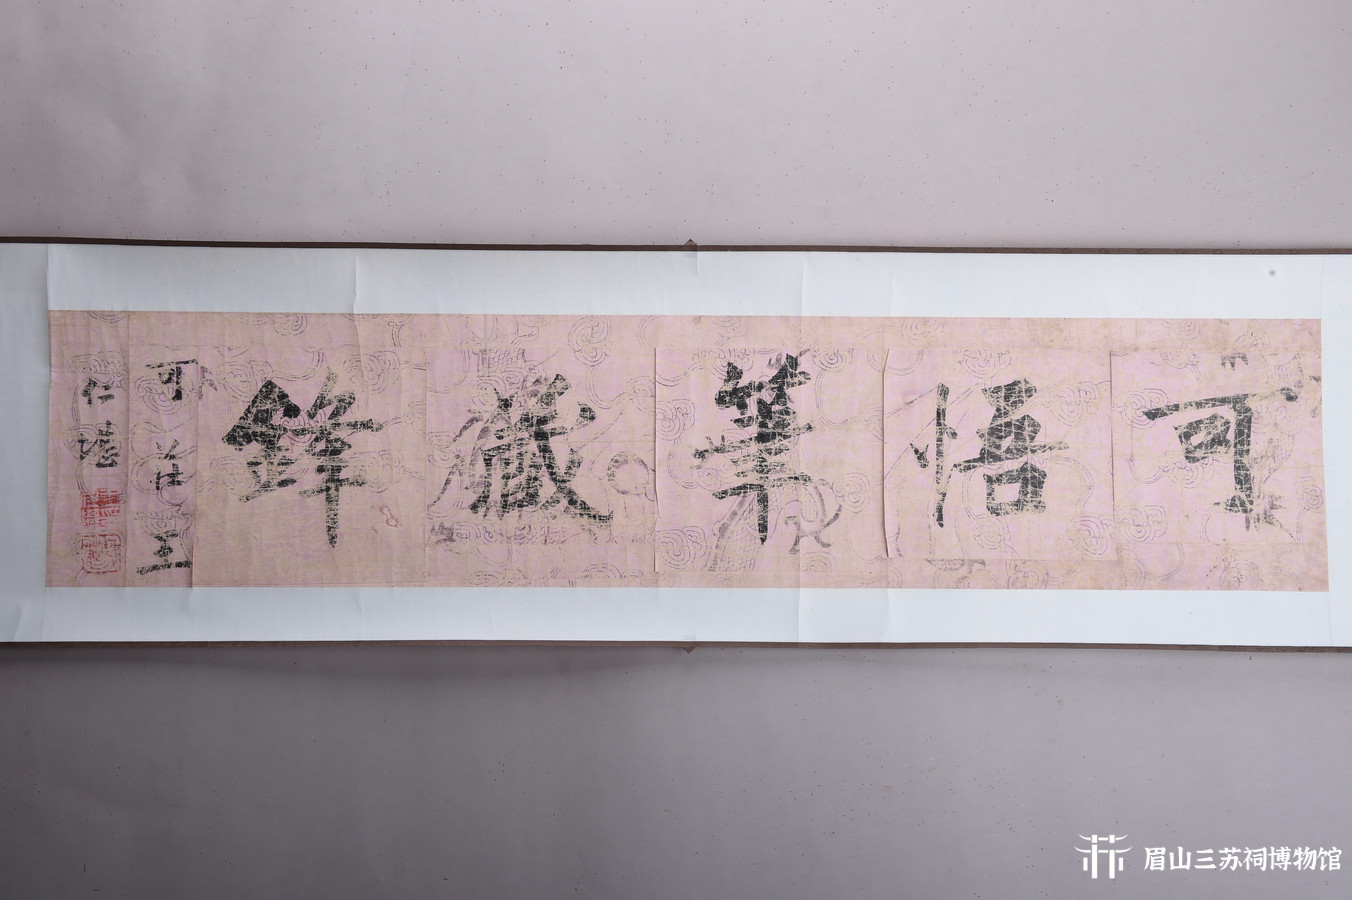 可悟筆藏鋒
可莊王
仁堪
眉山三苏祠博物馆